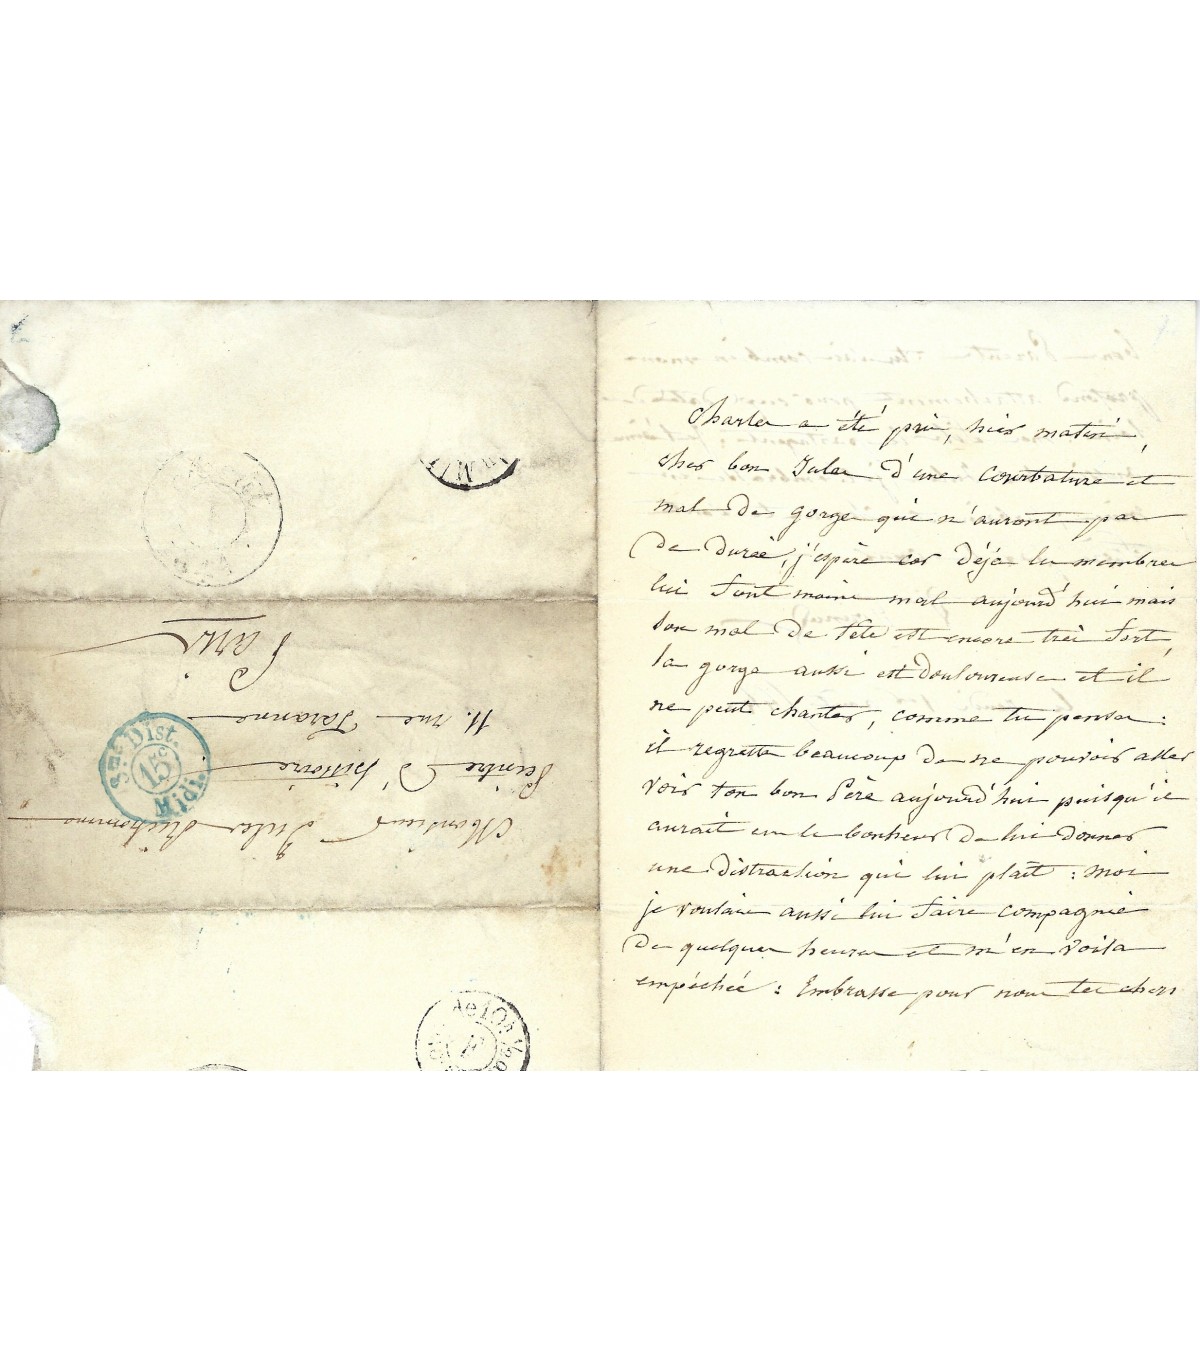 Charles a été pris, hier matin,
cher bon Jules d'une courbature et
mal de gorge qui n'auront pas
de durée, j'espère car déjà les membres
lui font moins mal aujourd'hui mais
son mal de tête est encore très fort,
la gorge aussi est douloureuse et il
ne peut chanter, comme tu penses :
il regrette beaucoup de ne pouvoir aller
voir ton bon Père aujourd'hui puisqu'il
aurait eu le bonheur de lui donner
une distraction qui lui plaît : moi
je voulais aussi lui faire compagnie
de quelques heures et m'en voila
empéchée : Embrasse pour nous tes chers
Monsieur Jules Richomme
Peintre d'histoire
11. rue Taranne
Paris
Dist.
15c
Midi.